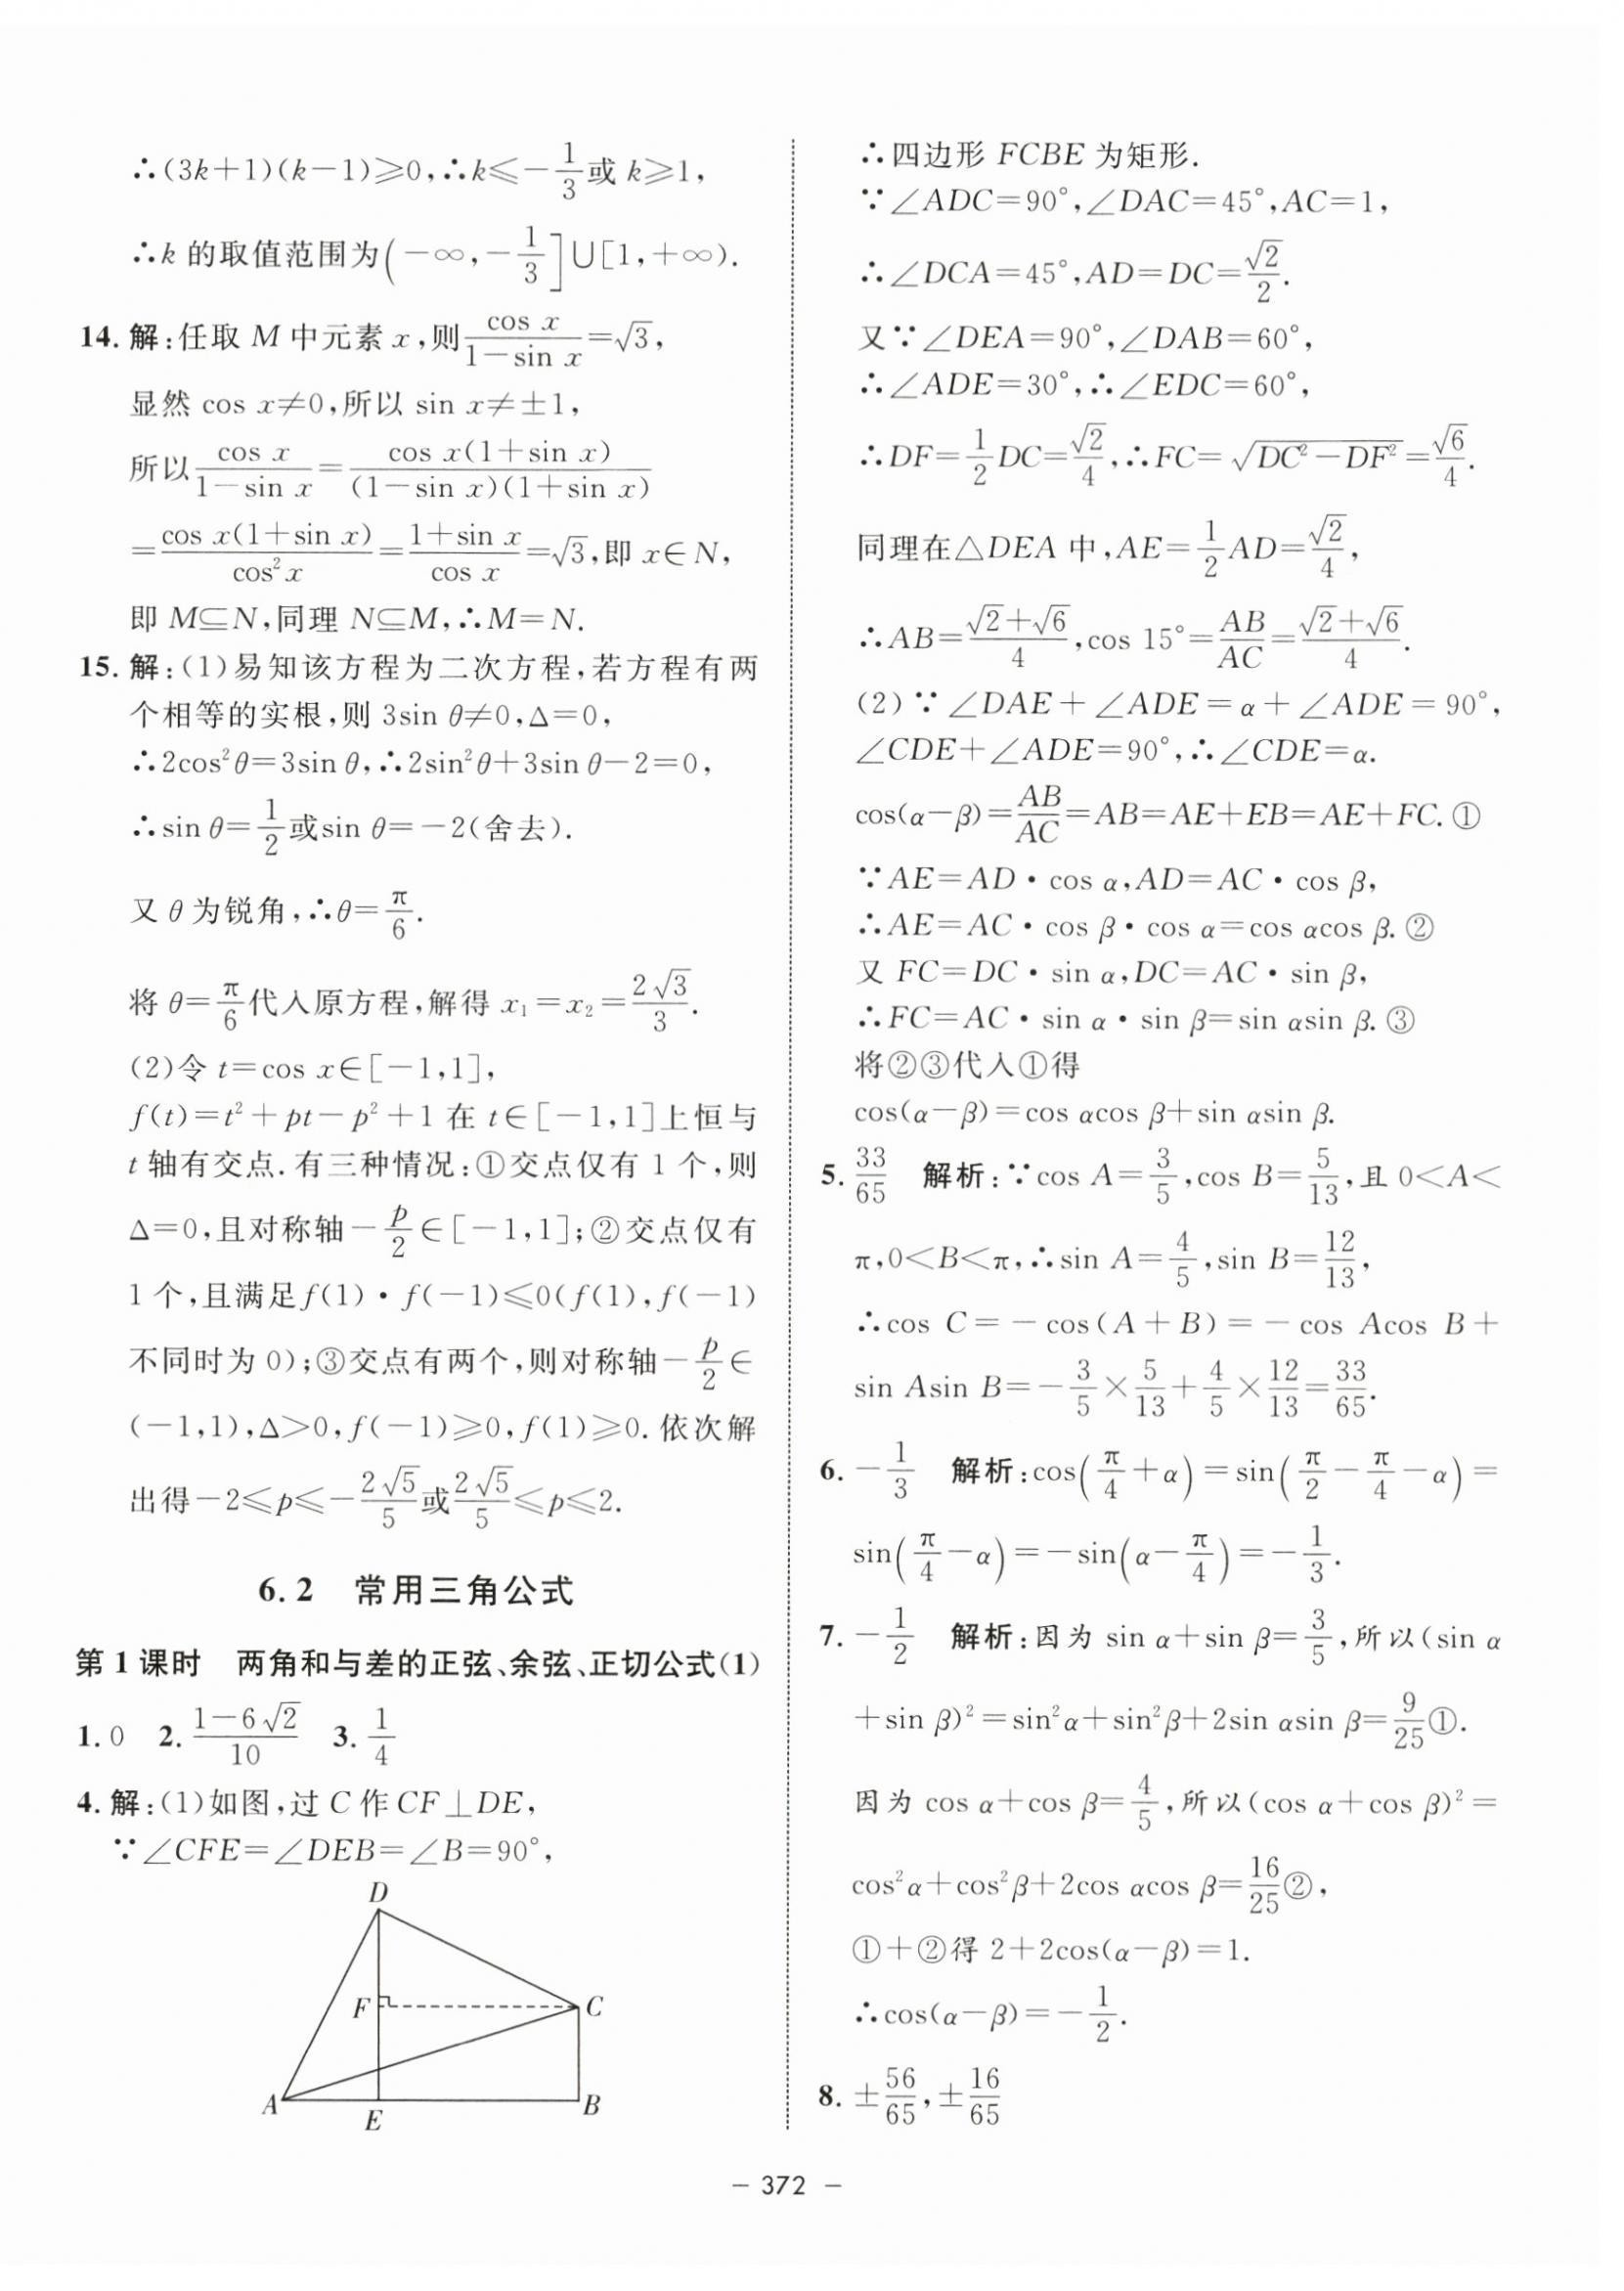 ∴(3k+1)(k-1)≥0,∴k≤-1/3或 k≥1,
∴k 的取值范围为(-∞,-1/3]∪[1,+∞).
14. 解:任取 M 中元素 x,则cos x/(1-sin x)=√3,
显然 cos x≠0,所以 sin x≠±1,
所以cos x/(1-sin x)=cos x(1+sin x)/((1-sin x)(1+sin x))
=cos x(1+sin x)/cos²x=(1+sin x)/cos x=√3,即 x∈N,
即 M⊆N,同理 N⊆M,∴M=N.
15. 解:(1)易知该方程为二次方程,若方程有两
个相等的实根,则 3sin θ≠0,Δ=0,
∴2cos²θ=3sin θ,∴2sin²θ+3sin θ-2=0,
∴sin θ=1/2或sin θ=-2(舍去).
又 θ 为锐角,∴θ=π/6.
将 θ=π/6代入原方程,解得 x₁=x₂=2√3/3.
(2)令 t=cos x∈[-1,1],
f(t)=t²+pt-p²+1 在 t∈[-1,1]上恒与
t 轴有交点.有三种情况:①交点仅有 1 个,则
Δ=0,且对称轴-p/2∈[-1,1];②交点仅有
1 个,且满足f(1)·f(-1)≤0(f(1),f(-1)
不同时为 0);③交点有两个,则对称轴-p/2∈
(-1,1),Δ>0,f(-1)≥0,f(1)≥0.依次解
出得-2≤p≤-2√5/5或2√5/5≤p≤2.
6.2 常用三角公式
第 1 课时 两角和与差的正弦、余弦、正切公式(1)
1. 0 2. (1-6√2)/10 3. 1/4
4. 解:(1)如图,过 C 作 CF⊥DE,
∵∠CFE=∠DEB=∠B=90°,
D
F
C
A
E
B
∴四边形 FCBE 为矩形.
∵∠ADC=90°,∠DAC=45°,AC=1,
∴∠DCA=45°,AD=DC=√2/2.
又∵∠DEA=90°,∠DAB=60°,
∴∠ADE=30°,∴∠EDC=60°,
∴DF=1/2 DC=√2/4,∴FC=√(DC²-DF²)=√6/4.
同理在△DEA 中,AE=1/2 AD=√2/4,
∴AB=(√2+√6)/4,cos 15°=AB/AC=(√2+√6)/4.
(2)∵∠DAE+∠ADE=α+∠ADE=90°,
∠CDE+∠ADE=90°,∴∠CDE=α.
cos(α-β)=AB/AC=AB=AE+EB=AE+FC.①
∵AE=AD·cos α,AD=AC·cos β,
∴AE=AC·cos β·cos α=cos αcos β.②
又 FC=DC·sin α,DC=AC·sin β,
∴FC=AC·sin α·sin β=sin αsin β.③
将②③代入①得
cos(α-β)=cos αcos β+sin αsin β.
5. 33/65 解析:∵cos A=3/5,cos B=5/13,且 0<A<
π,0<B<π,∴sin A=4/5,sin B=12/13,
∴cos C=-cos(A+B)=-cos Acos B+
sin Asin B=-3/5×5/13+4/5×12/13=33/65.
6. -1/3 解析:cos(π/4+α)=sin(π/2-π/4-α)=
sin(π/4-α)=-sin(α-π/4)=-1/3.
7. -1/2 解析:因为 sin α+sin β=3/5,所以(sin α
+sin β)²=sin²α+sin²β+2sin αsin β=9/25①.
因为 cos α+cos β=4/5,所以(cos α+cos β)²=
cos²α+cos²β+2cos αcos β=16/25②,
①+②得 2+2cos(α-β)=1.
∴cos(α-β)=-1/2.
8. ±56/65,±16/65
- 372 -